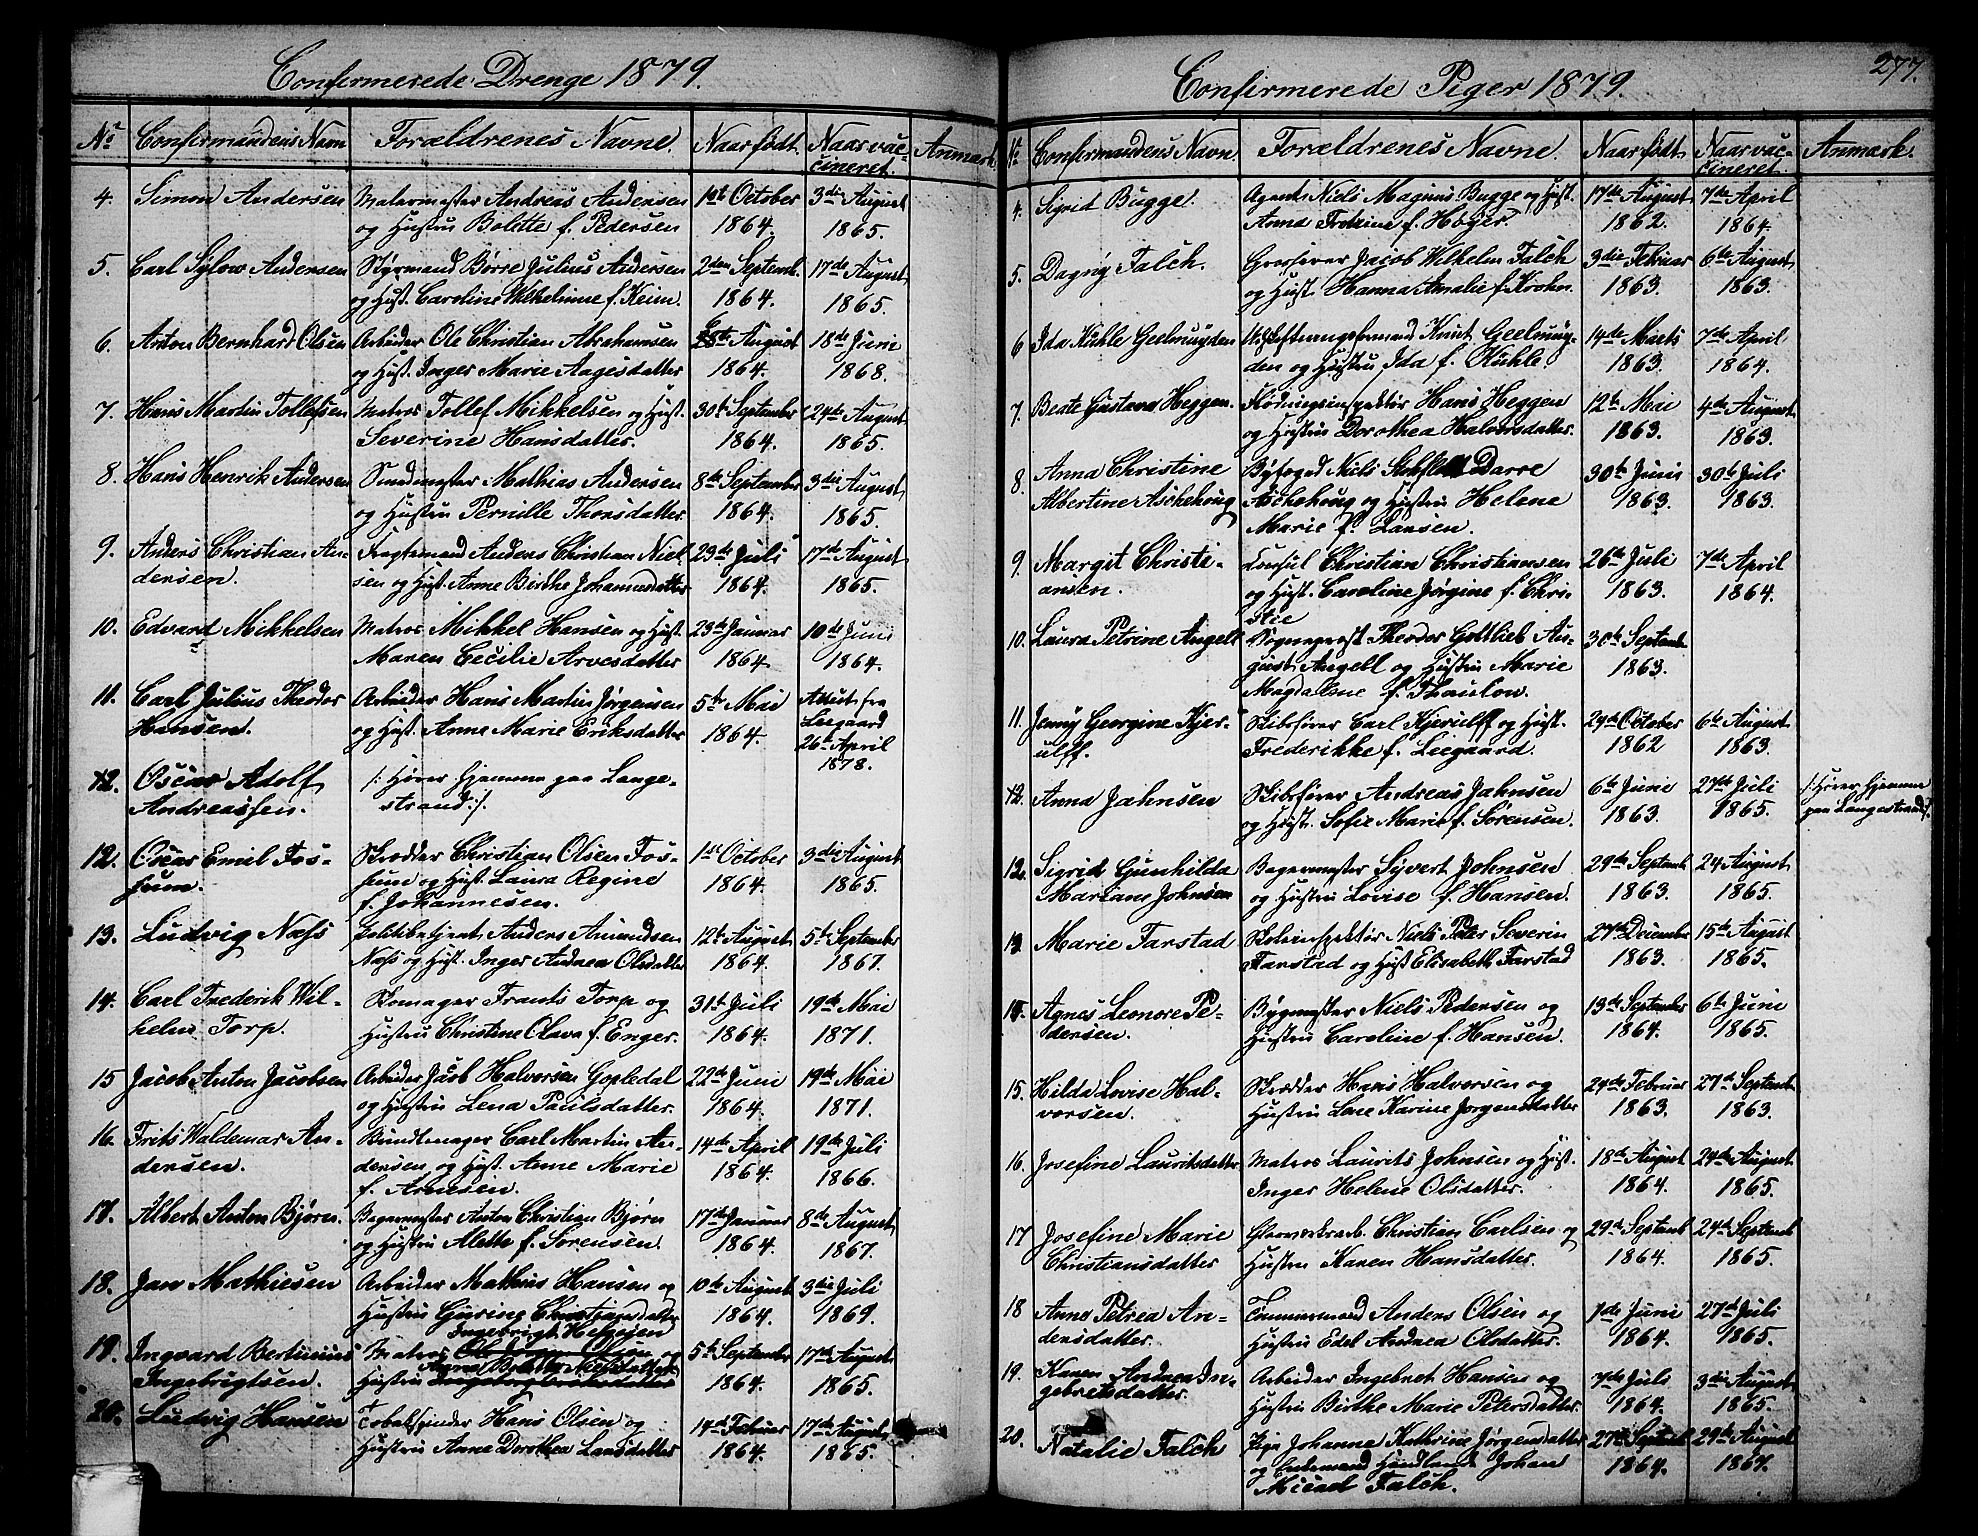 Confirmerede Drenge 1879.
No Confirmandens Navn Forældrenes Navne. Naar født. Naar vac- Anmærk.
cineret.
4. Simon Andersen Andreas Andersen 1ste October 3die August
og Hustru Bolette f. Pedersen 1864. 1865.
5. Carl Sylow Andersen Styrmand Børre Julius Andersen 2den Septemb. 17de August
og Hust. Caroline Wilhelmine f. Keim. 1864. 1865.
6. Anton Bernhard Olsen Arbeider Ole Christian Abrahamsen August 18de Juni
og Hust. Inger Marie Aagesdatter 1864. 1868.
7. Hans Martin Tollefsen Matros Tollef Mikkelsen og Hust. 30te September 24de August
Severine Hansdatter. 1864. 1865.
8. Hans Henrik Andersen Mathias Andersen 8de September 3die August
og Hustru Pernille Thorsdatter. 1864. 1865.
9. Anders Christian An- Anders Christian Niel- 23de Juli 17de August
dersen. sen og Hust. Anne Birthe Johannesdatter 1864. 1865.
10. Edvard Mikkelsen Matros Mikkel Hansen og Hust. 23de Januar 10de Juni
Maren Cecilie Arvesdatter 1864. 1864.
11. Carl Julius Theodor Arbeider Hans Martin Jørgensen 5te Mai Attest fra
Hansen. og Hust. Anne Marie Eriksdatter 1864. Leegaard
26de April
1878.
12. Oscar Adolf /: Hører hjemme paa Lange-
Andreassen. strand :/.
12. Oscar Emil Fos- Skrædder Christian Olsen Fos- 1ste October 3die August
sum. sum og Hust. Laura Regine 1864. 1865.
f. Johannesen.
13. Ludvig Næss Politibetjent Anders Amundsen 12te August 5te September
Næss og Hust. Inger Andrea Olsdatter 1864. 1867.
14. Carl Frederik Wil- Skomager Frants Torp og 31te Juli 19de Mai
helm Torp. Hustru Christine Olava f. Enger. 1864. 1871.
15 Jacob Anton Jacobsen Arbeider Jacob Halvorsen Gopledal 22de Juni 19de Mai
og Hustru Lena Paulsdatter. 1864. 1871.
16. Frits Waldemar An- Bundtmager Carl Martin An- 14de April 19de Juli
dersen. dersen og Hust. Anne Marie 1864. 1866.
f. Arnesen.
17. Albert Anton Bjørn. Bagermester Anton Christian Bjørn 17de Januar 8de August
og Hustru Alette f. Sørensen. 1864. 1867.
18. Jan Mathiesen Arbeider Mathias Hansen og 10de August 3die Juli
Hustru Gurine Christiansdatter 1864. 1869.
Ingebrigt Helgesen
19. Ingvard Bertinius Matros Ole Olsen og 5te September 17de August
Ingebrigtsen. Hustru 1864. 1865.
20. Ludvig Hansen Hans Olsen og 14de Februar 17de August
Hustru Anne Dorothea Larsdatter 1864. 1865.
Confirmerede Piger 1879. 277.
No Confirmandens Navn. Forældrenes Navne. Naar født. Naar vac- Anmærk.
cineret.
4. Sigrid Bugge. Agent Niels Magnus Bugge og Hust. 17de August 7de April
Anna f. Høyer. 1862. 1864.
5. Dagny Falch. Grosserer Jacob Wilhelm Falch 3die Februar 6te August
og Hust. Hanna Amalie f. Krohn. 1863. 1863.
6 Ida Kühle Geelmuyden Udskiftningsformand Knut Geelmuy- 14de Marts 7de April
den og Hustru Ida f. Kühle. 1863. 1864.
7. Beate Gustava Heggen. Flødningsinspektør Hans Heggen 12te Mai 4de August
og Hustru Dorothea Halvorsdatter. 1863. 1863.
8. Anna Christine Byfoged Niels Darre 30te Juni 30te Juli
Albertine Aschehoug Aschehoug og Hustru Helene 1863. 1863.
Marie f. Larsen.
9. Margit Christi- Consul Christian Christiansen 26de Juli 7de April
ansen. og Hust. Caroline Jørgine f. Chri- 1863. 1864.
stie
10. Laura Petrine Angell Sogneprest Theodor Gottlieb Au- 30te Septemb.
gust Angell og Hustru Marie 1863.
Magdalene f. Thaulow.
11. Jenny Georgine Kjer- Skibsfører Carl Kjerulff og Hust. 24de October 6te August
ulff. Frederikke f. Liegaard. 1862 1863.
12. Anna Jahnsen Skibsfører Andreas Jahnsen 6te Juni 27de Juli /: Hører hjemme
og Hust. Sofie Marie f. Sørensen. 1863. 1865. paa Langestrand :/.
12. Sigrid Gunhilda Bagermester Syvert Johnsen 29de Septemb 24 August
Mariane Johnsen og Hustru Lovise f. Hansen. 1863. 1865.
13 Marie Farstad Skoleinspektør Niels Peter Severin 27de December 15de August
Farstad og Hust Elisabeth Farstad 1863. 1865.
14. Agnes Leonore Pe- Bygmester Niels Pedersen og 13de September 6te Juni
dersen. Hustru Caroline f. Hansen. 1864. 1865.
15. Hilda Lovise Hal- Skrædder Hans Halvorsen og 24de Februar 27de Septemb.
vorsen. Hustru Karine Jørgensdatter 1863. 1863.
16. Josefine Lauritsdatter Matros Laurits Johnsen og Hust. 18de August 24de August
Inger Helene Olsdatter. 1864. 1865.
17 Josefine Marie Glasværksarb. Christian Carlsen og 29de Septemb 24de Septemb
Christiansdatter Hustru Karen Hansdatter. 1864. 1865.
18 Anne Petrea An- Tømmermand Anders Olsen og 7de Juni 27de Juli
dersdatter. Hustru Edel Andrea Olsdatter. 1864. 1865.
19. Karen Andrea In- Arbeider Ingebret Hansen og 7de Juli 3die August
gebretsdatter. Hustru Birthe Marie Petersdatter. 1864. 1865.
20. Natalie Falch Pige Johanne Kathrine Jørgensdatter 27de Septemb 29de August
og Johan 1864. 1867.
Michael Falch.